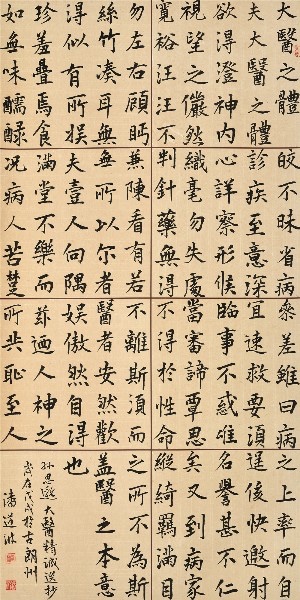 大醫之體
夫大醫之體
欲得澄神內
視望之儼然
寬裕汪汪不
皎不昧省病
診疾至意深
心詳察形候
纖毫勿失處
判針藥無得
參差雖曰病
宜速救要須
臨事不惑唯
當審諦覃思
不得於性命
之上率而自
逞俊快邀射
名譽甚不仁
矣又到病家
縱綺羅滿目
勿左右顧眄
絲竹湊耳無
得似有所娛
珍羞疊薦食
如無味醽醁
兼陳看有若
無所以尔者
夫壹人向隅
滿堂不樂而
況病人苦楚
不離斯須而
醫者安然歡
娛傲然自得
茲迺人神之
所共恥至人
之所不為斯
蓋醫之本意
也
孫思邈大醫精誠選抄
歲在戊戌於古朗州
潘道